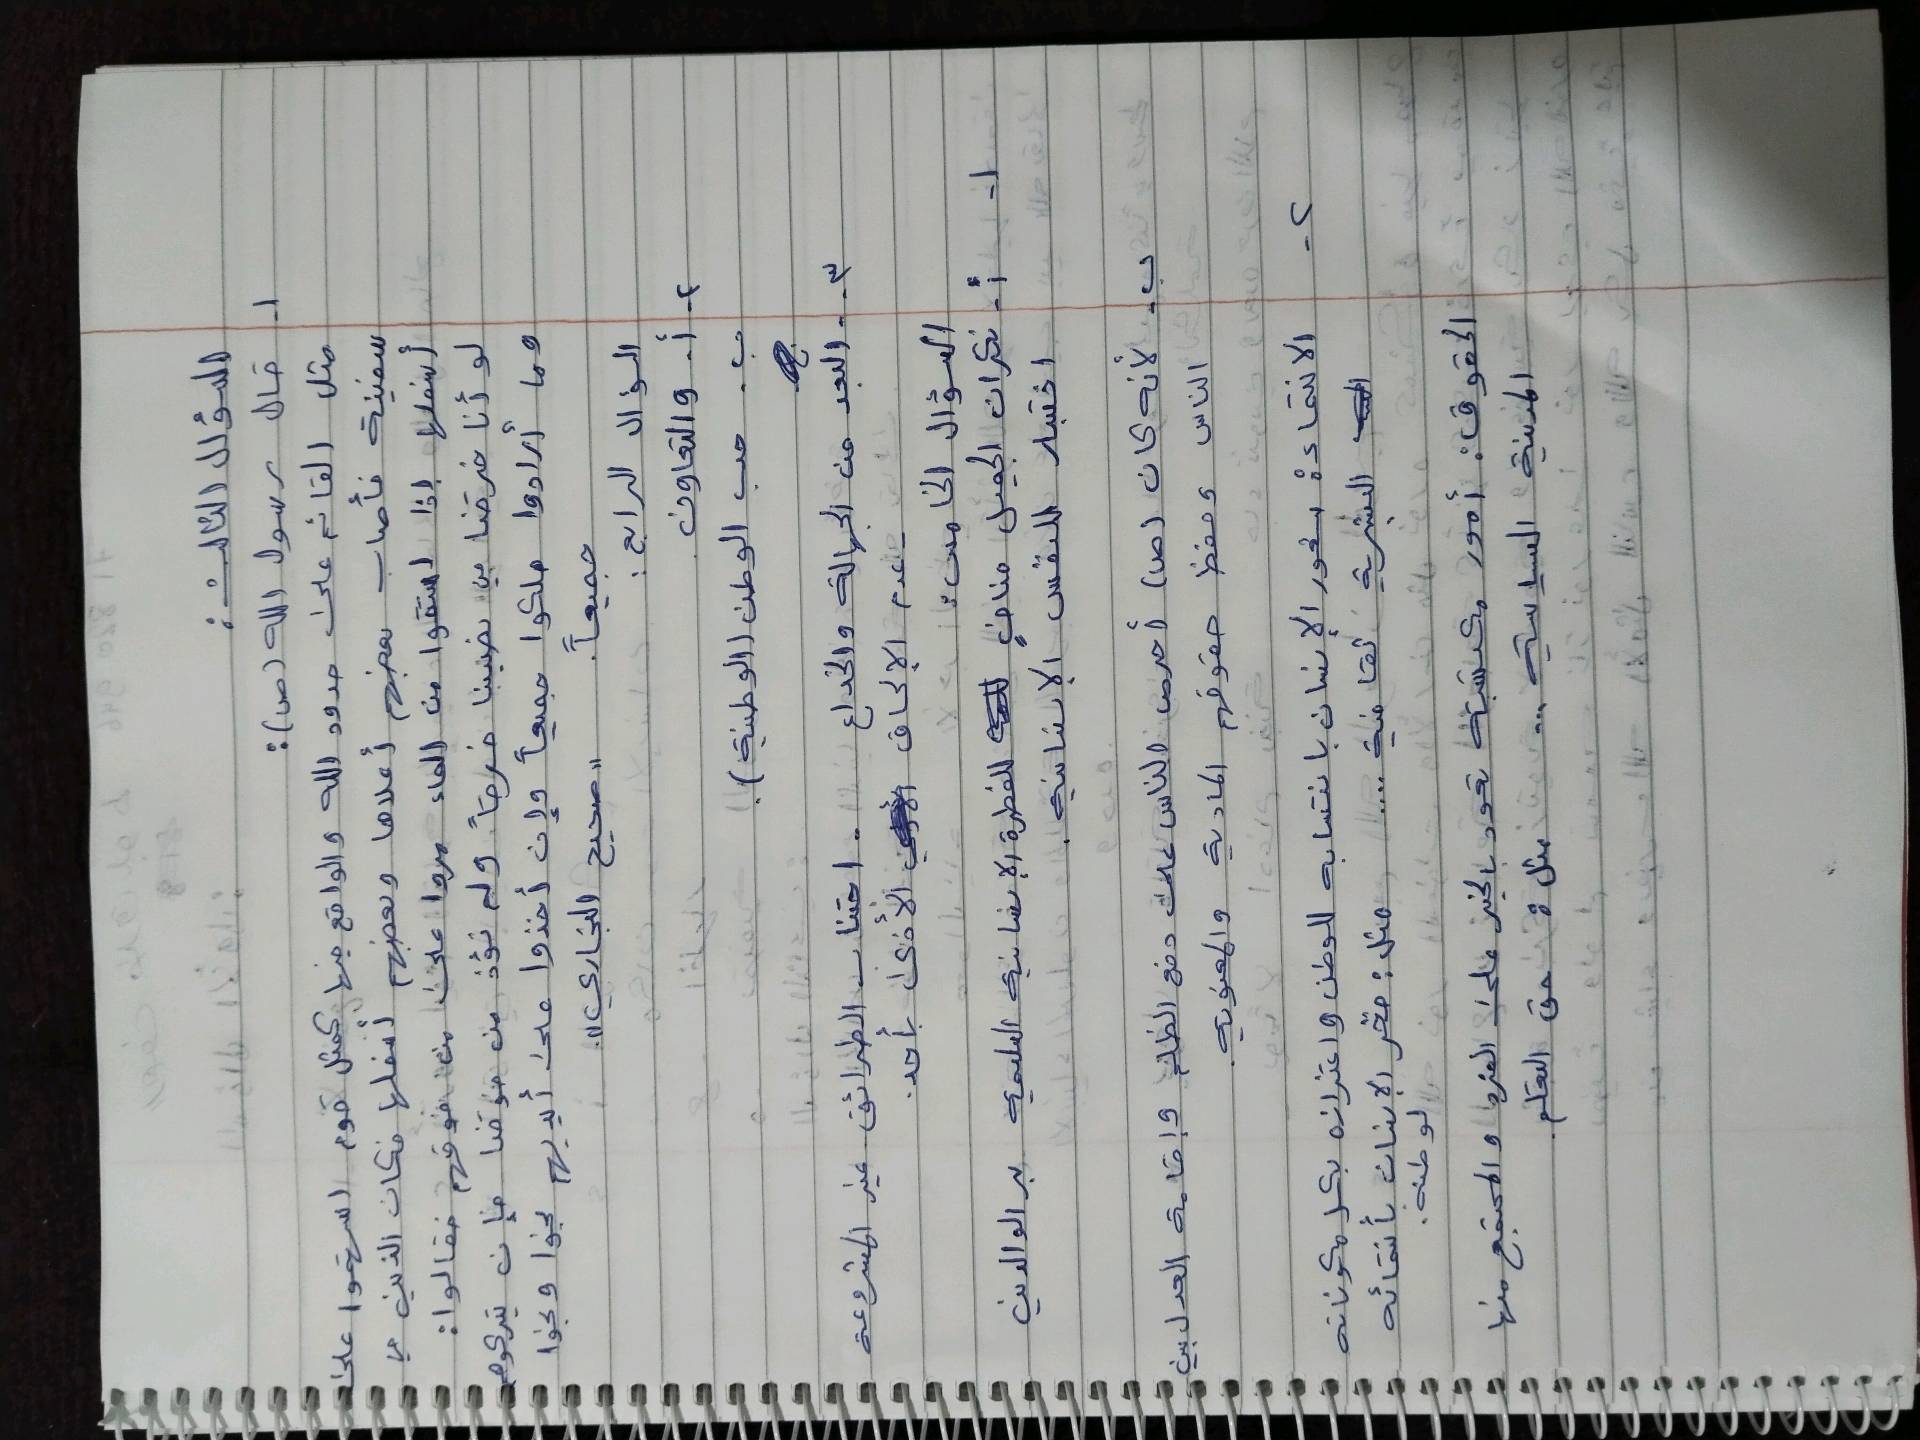 السؤال الثالث:
١- قال رسول الله (ص):
مثل القائم على حدود الله والواقع فيها كمثل قوم استهموا على
سفينة فأصاب بعضهم أعلاها وبعضهم أسفلها فكان الذين في
أسفلها إذا استقوا من الماء مروا على من فوقهم فقالوا:
لو أنا خرقنا في نصيبنا خرقاً ولم نؤذ من فوقنا فإن يتركوهم
وما أرادوا هلكوا جميعاً وإن أخذوا على أيديهم نجوا ونجوا
جميعاً. "صحيح البخاري".
السؤال الرابع:
٢- أ- والتعاون.
ب- حب الوطن (الوطنية).
٣- - البعد من الجهالة والخداع - اجتناب الطرائق غير المشروعة
- عدم الإلحاق الأذى بأحد.
السؤال الخامس:
١- أ- نكران الجميل منافٍ للفطرة الإنسانية السليمة بر الوالدين
اختبار للنفس الإنسانية.
ب- لأنه كان (ص) أحرص الناس على دفع الظلم وإقامة العدل بين
الناس وحفظ حقوقهم المادية والمعنوية.
٢- الانتماء: شعور الإنسان بانتسابه للوطن واعتزازه بكل مكوناته
البشرية ثقافية .... مثل: فخر الإنسان بأنتمائه
لوطنه.
الحقوق: أمور مكتسبة تعود بالخير على الفرد والمجتمع منها
المدنية والسياسية ... مثل: حق التعلم.